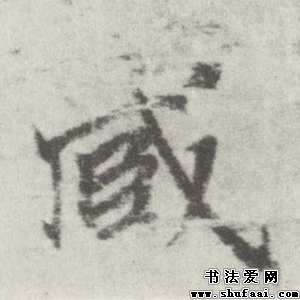 臧
书法爱网
www.shufaai.com